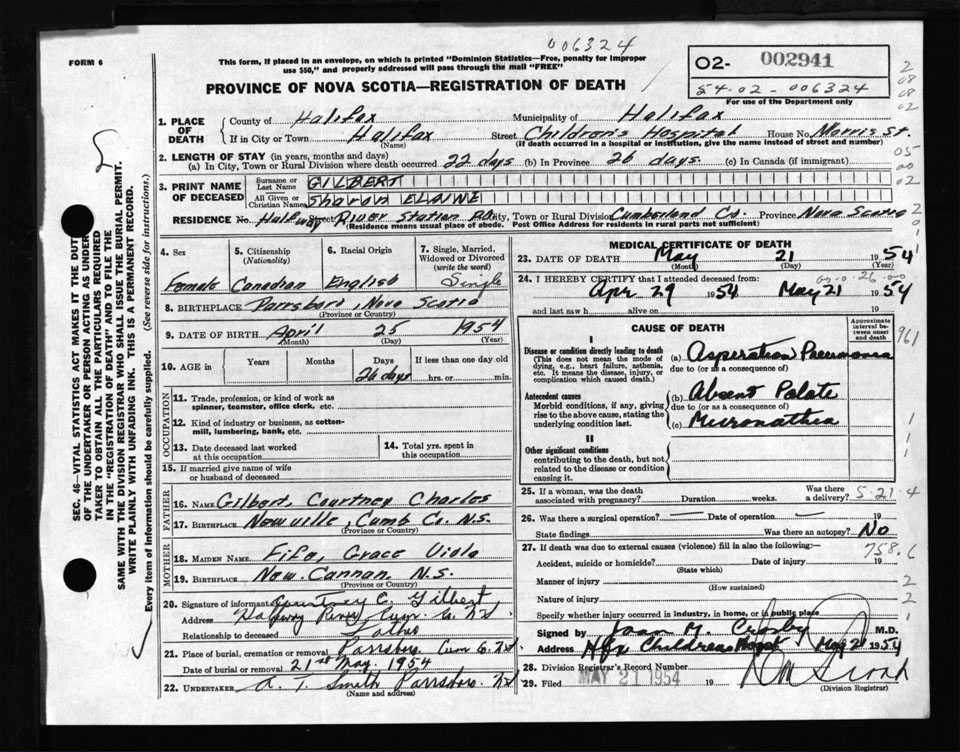 006324
FORM 6
This form, if placed in an envelope, on which is printed "Dominion Statistics—Free, penalty for improper
use $50," and properly addressed will pass through the mail "FREE"
O2- 002941
54-02-006324
For use of the Department only
PROVINCE OF NOVA SCOTIA—REGISTRATION OF DEATH
1. PLACE OF DEATH
County of Halifax Municipality of Halifax
If in City or Town Halifax Street Children's Hospital House No. Morris St.
(Name) (If death occurred in a hospital or institution, give the name instead of street and number)
2. LENGTH OF STAY (in years, months and days)
(a) In City, Town or Rural Division where death occurred 22 days (b) In Province 26 days. (c) In Canada (if immigrant)
3. PRINT NAME OF DECEASED
Surname or Last Name GILBERT
All Given or Christian Names Sharon ELAINE
RESIDENCE No. Halfway Street River Station P.O. City, Town or Rural Division Cumberland Co. Province Nova Scotia
(Residence means usual place of abode. Post Office Address for residents in rural parts not sufficient)
4. Sex Female
5. Citizenship (Nationality) Canadian
6. Racial Origin English
7. Single, Married, Widowed or Divorced (write the word) Single
8. BIRTHPLACE Parrsboro, Nova Scotia
(Province or Country)
9. DATE OF BIRTH April 25 1954
(Month) (Day) (Year)
10. AGE in Years Months Days 26 days If less than one day old hrs. or min.
OCCUPATION
11. Trade, profession, or kind of work as spinner, teamster, office clerk, etc.
12. Kind of industry or business, as cotton-mill, lumbering, bank, etc.
13. Date deceased last worked at this occupation
14. Total yrs. spent in this occupation
15. If married give name of wife or husband of deceased
FATHER
16. NAME Gilbert, Courtney Charles
17. BIRTHPLACE Newville, Cumb Co. N.S.
(Province or Country)
MOTHER
18. MAIDEN NAME Fife, Grace Viola
19. BIRTHPLACE New Cannan, N.S.
(Province or Country)
20. Signature of informant Courtney C. Gilbert
Address Halfway River, Cum. Co. N.S
Relationship to deceased Father
21. Place of burial, cremation or removal Parrsboro Cum Co. N.S
Date of burial or removal 21st May. 1954
22. UNDERTAKER A. T. Smith Parrsboro NS
(Name and address)
MEDICAL CERTIFICATE OF DEATH
23. DATE OF DEATH May 21 1954
(Month) (Day) (Year)
24. I HEREBY CERTIFY that I attended deceased from:
Apr 29 1954 May 21 1954
and last saw h alive on 19
CAUSE OF DEATH
Approximate interval between onset and death
I
Disease or condition directly leading to death
(This does not mean the mode of dying, e.g., heart failure, asthenia, etc. It means the disease, injury, or complication which caused death.)
(a) Aspiration Pneumonia
due to (or as a consequence of)
Antecedent causes
Morbid conditions, if any, giving rise to the above cause, stating the underlying condition last.
(b) Absent Palate
due to (or as a consequence of)
(c) Micronathia
II
Other significant conditions
contributing to the death, but not related to the disease or condition causing it.
25. If a woman, was the death associated with pregnancy? Duration weeks. Was there a delivery? 5-21-4
26. Was there a surgical operation? — Date of operation — 19
State findings Was there an autopsy? No
27. If death was due to external causes (violence) fill in also the following:—
758.6
Accident, suicide or homicide? Date of injury 19
(State which)
Manner of injury
(How sustained)
Nature of injury
Specify whether injury occurred in industry, in home, or in public place
Signed by Joan M. Crosby M.D.
Address Hfx Childrens Hospt May 21 1954
28. Division Registrar's Record Number
29. Filed MAY 21 1954 19
(Division Registrar)
SEC. 46—VITAL STATISTICS ACT MAKES IT THE DUTY
OF THE UNDERTAKER OR PERSON ACTING AS UNDER-
TAKER TO OBTAIN ALL THE PARTICULARS REQUIRED
IN THE "REGISTRATION OF DEATH" AND TO FILE THE
SAME WITH THE DIVISION REGISTRAR WHO SHALL ISSUE THE BURIAL PERMIT.
WRITE PLAINLY WITH UNFADING INK. THIS IS A PERMANENT RECORD.
Every item of information should be carefully supplied. (See reverse side for instructions.)